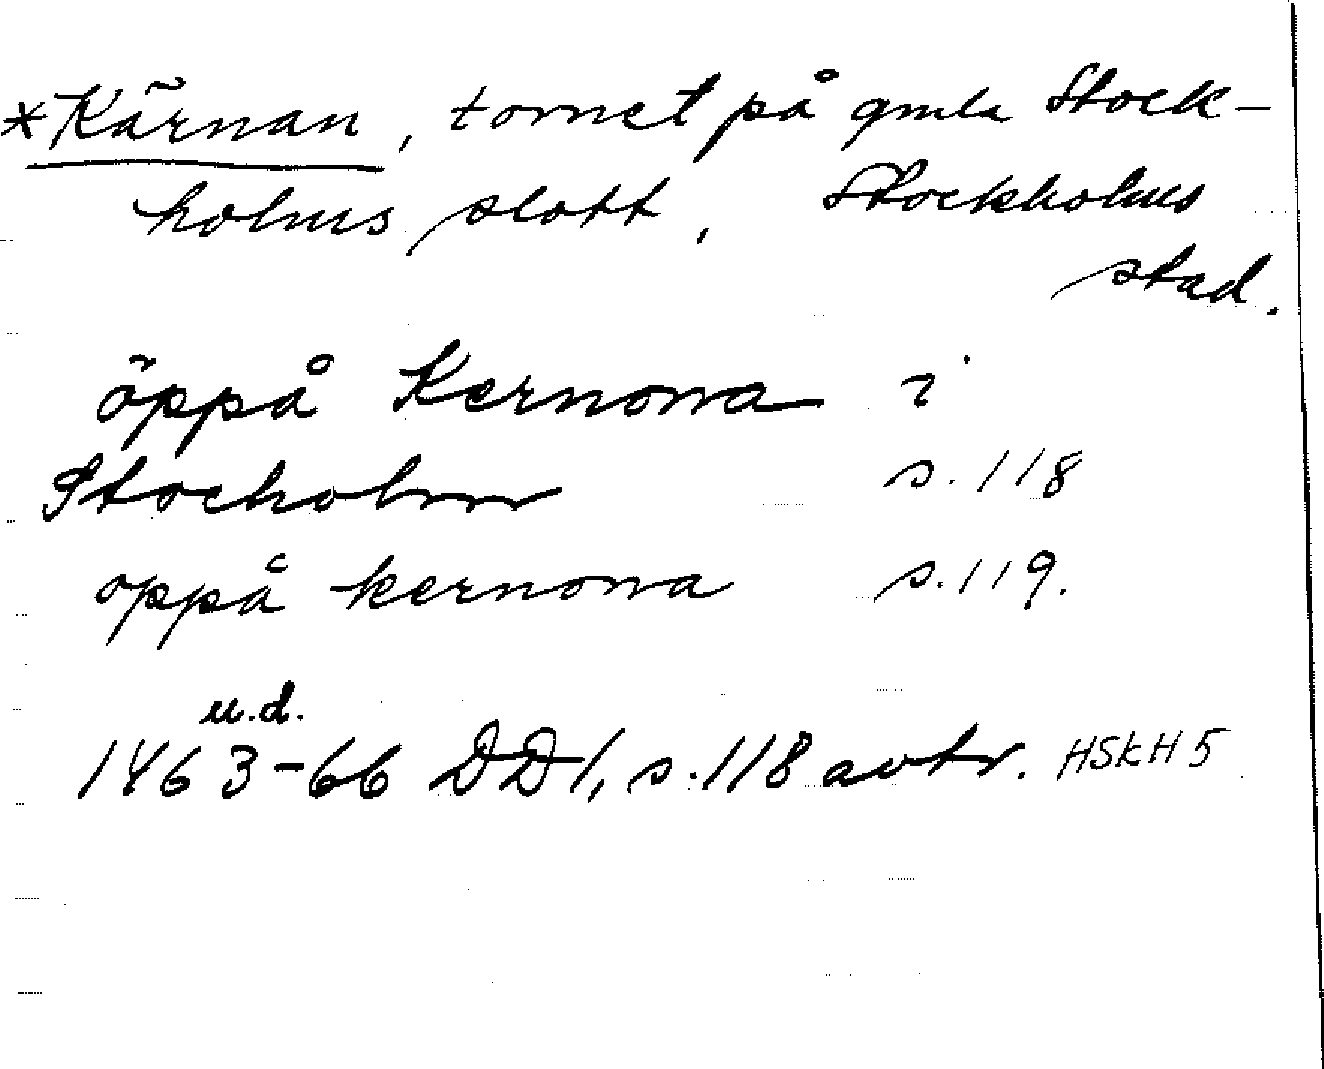 *Kärnan, tornet på gmla Stock-
holms slott, Stockholms
stad.
öppå Kernona i
Stocholm s.118
oppå kernona s.119.
u.d.
1463-66 DD1, s.118 avtr. HSKH5